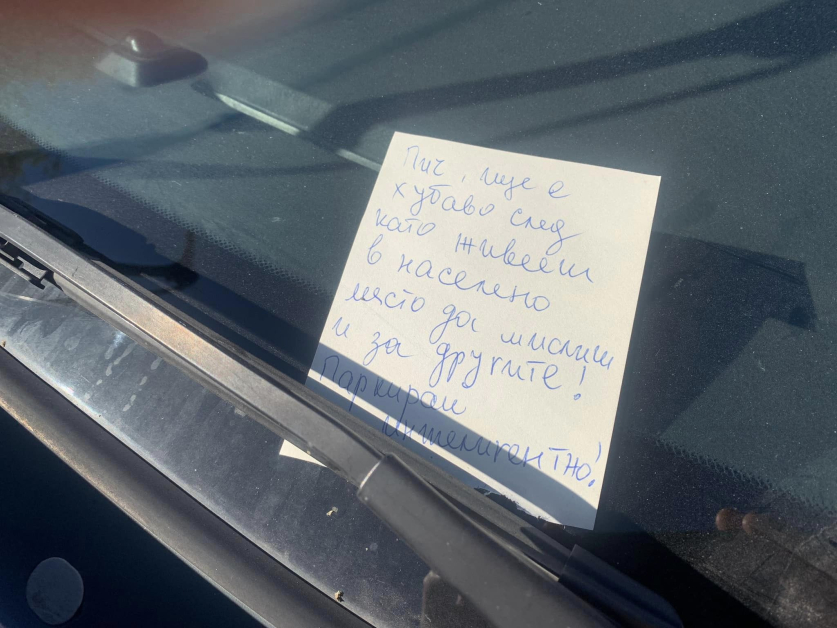 Пич, ще е
хубаво след
като живееш
в населено
място да мислиш
и за другите!
Паркирай
интелигентно!